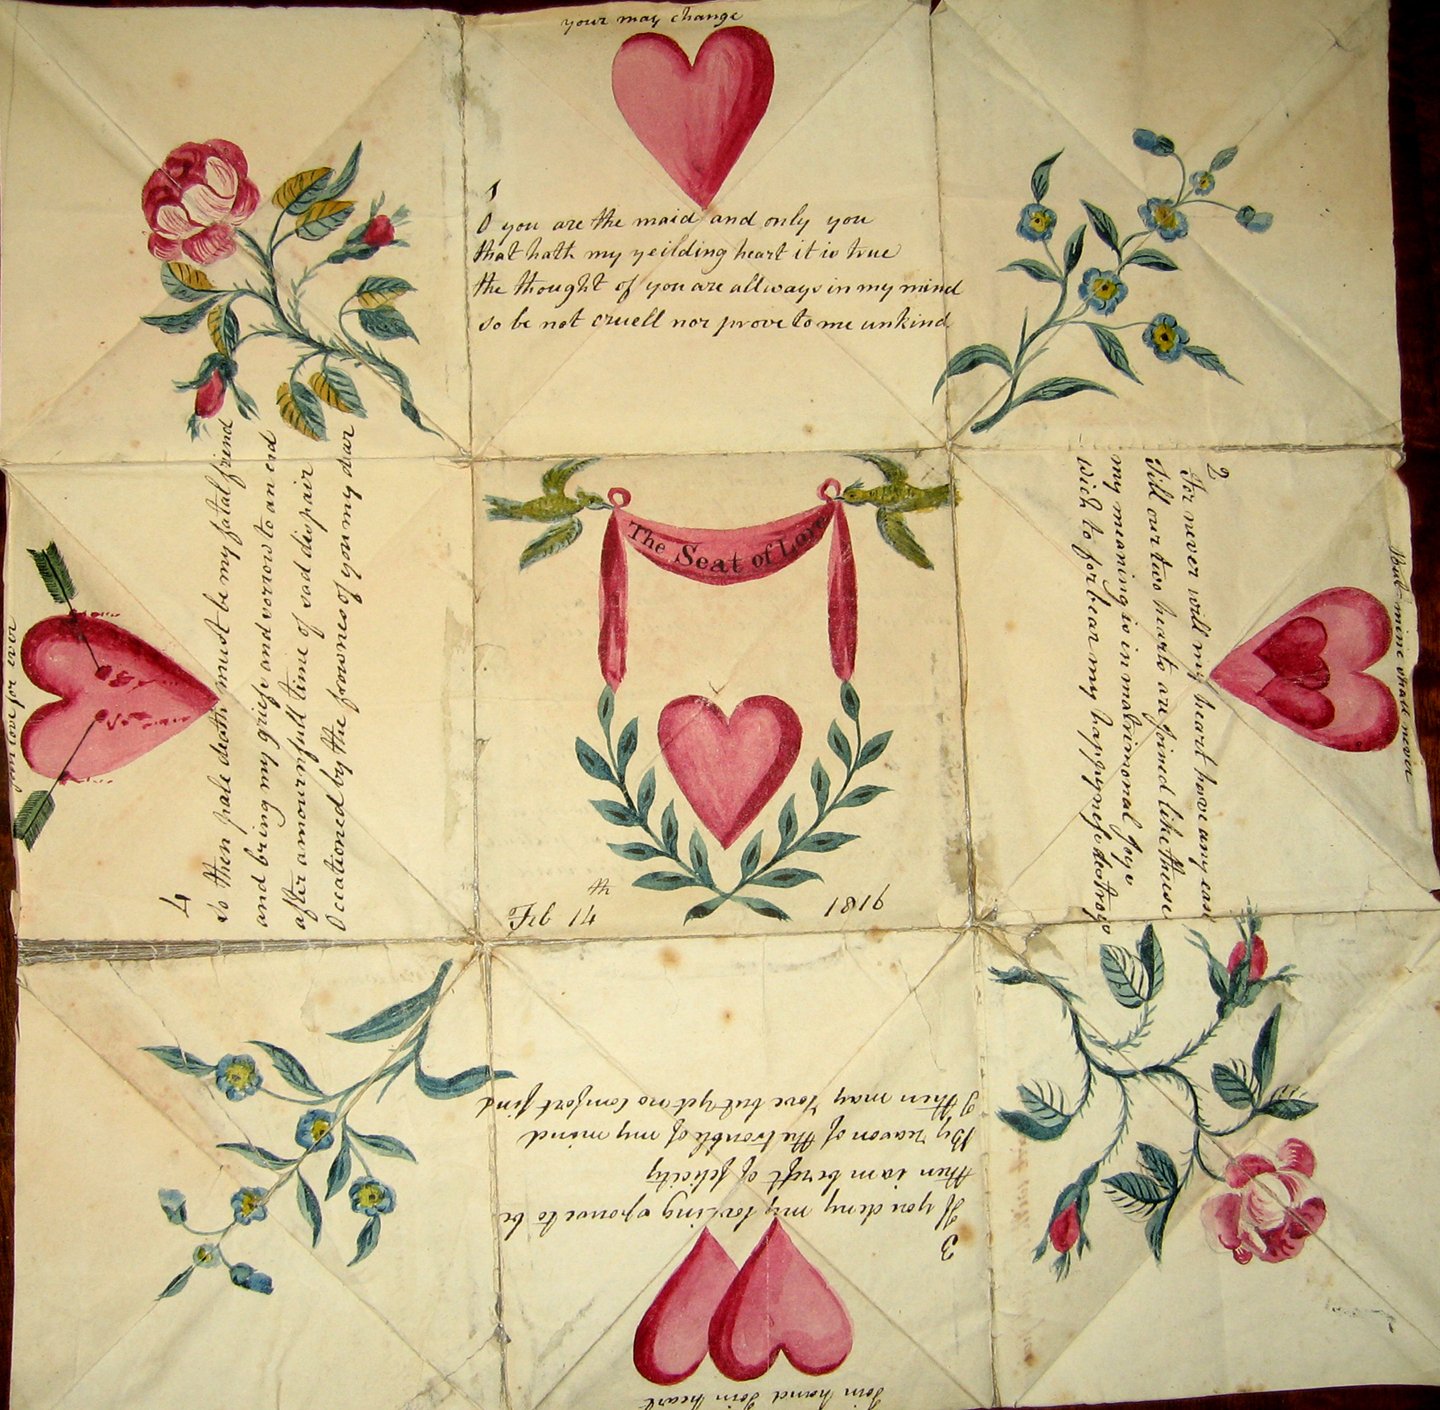 your may change
1
O you are the maid and only you
that hath my yeilding heart it is true
the thought of you are allways in my mind
so be not cruell nor prove to me unkind
But mine shall never
2
For never will my heart have any ease
Till our two hearts are joined like these
my meaning is in matrimonal joys
Wich to forbear my happyness destroys
Join hand Join heart
3
If you deny my loving spouse to be
then i am bereft of felicity
By reason of the trouble of my mind
I then may love but yet no comfort find
join love for ever
4
So then pale death must be my fatal friend
and bring my griefe and sorrow to an end
after a mournfull time of sad dispair
Occationed by the frownes of you my dear
The Seat of Love
Feb 14th 1816